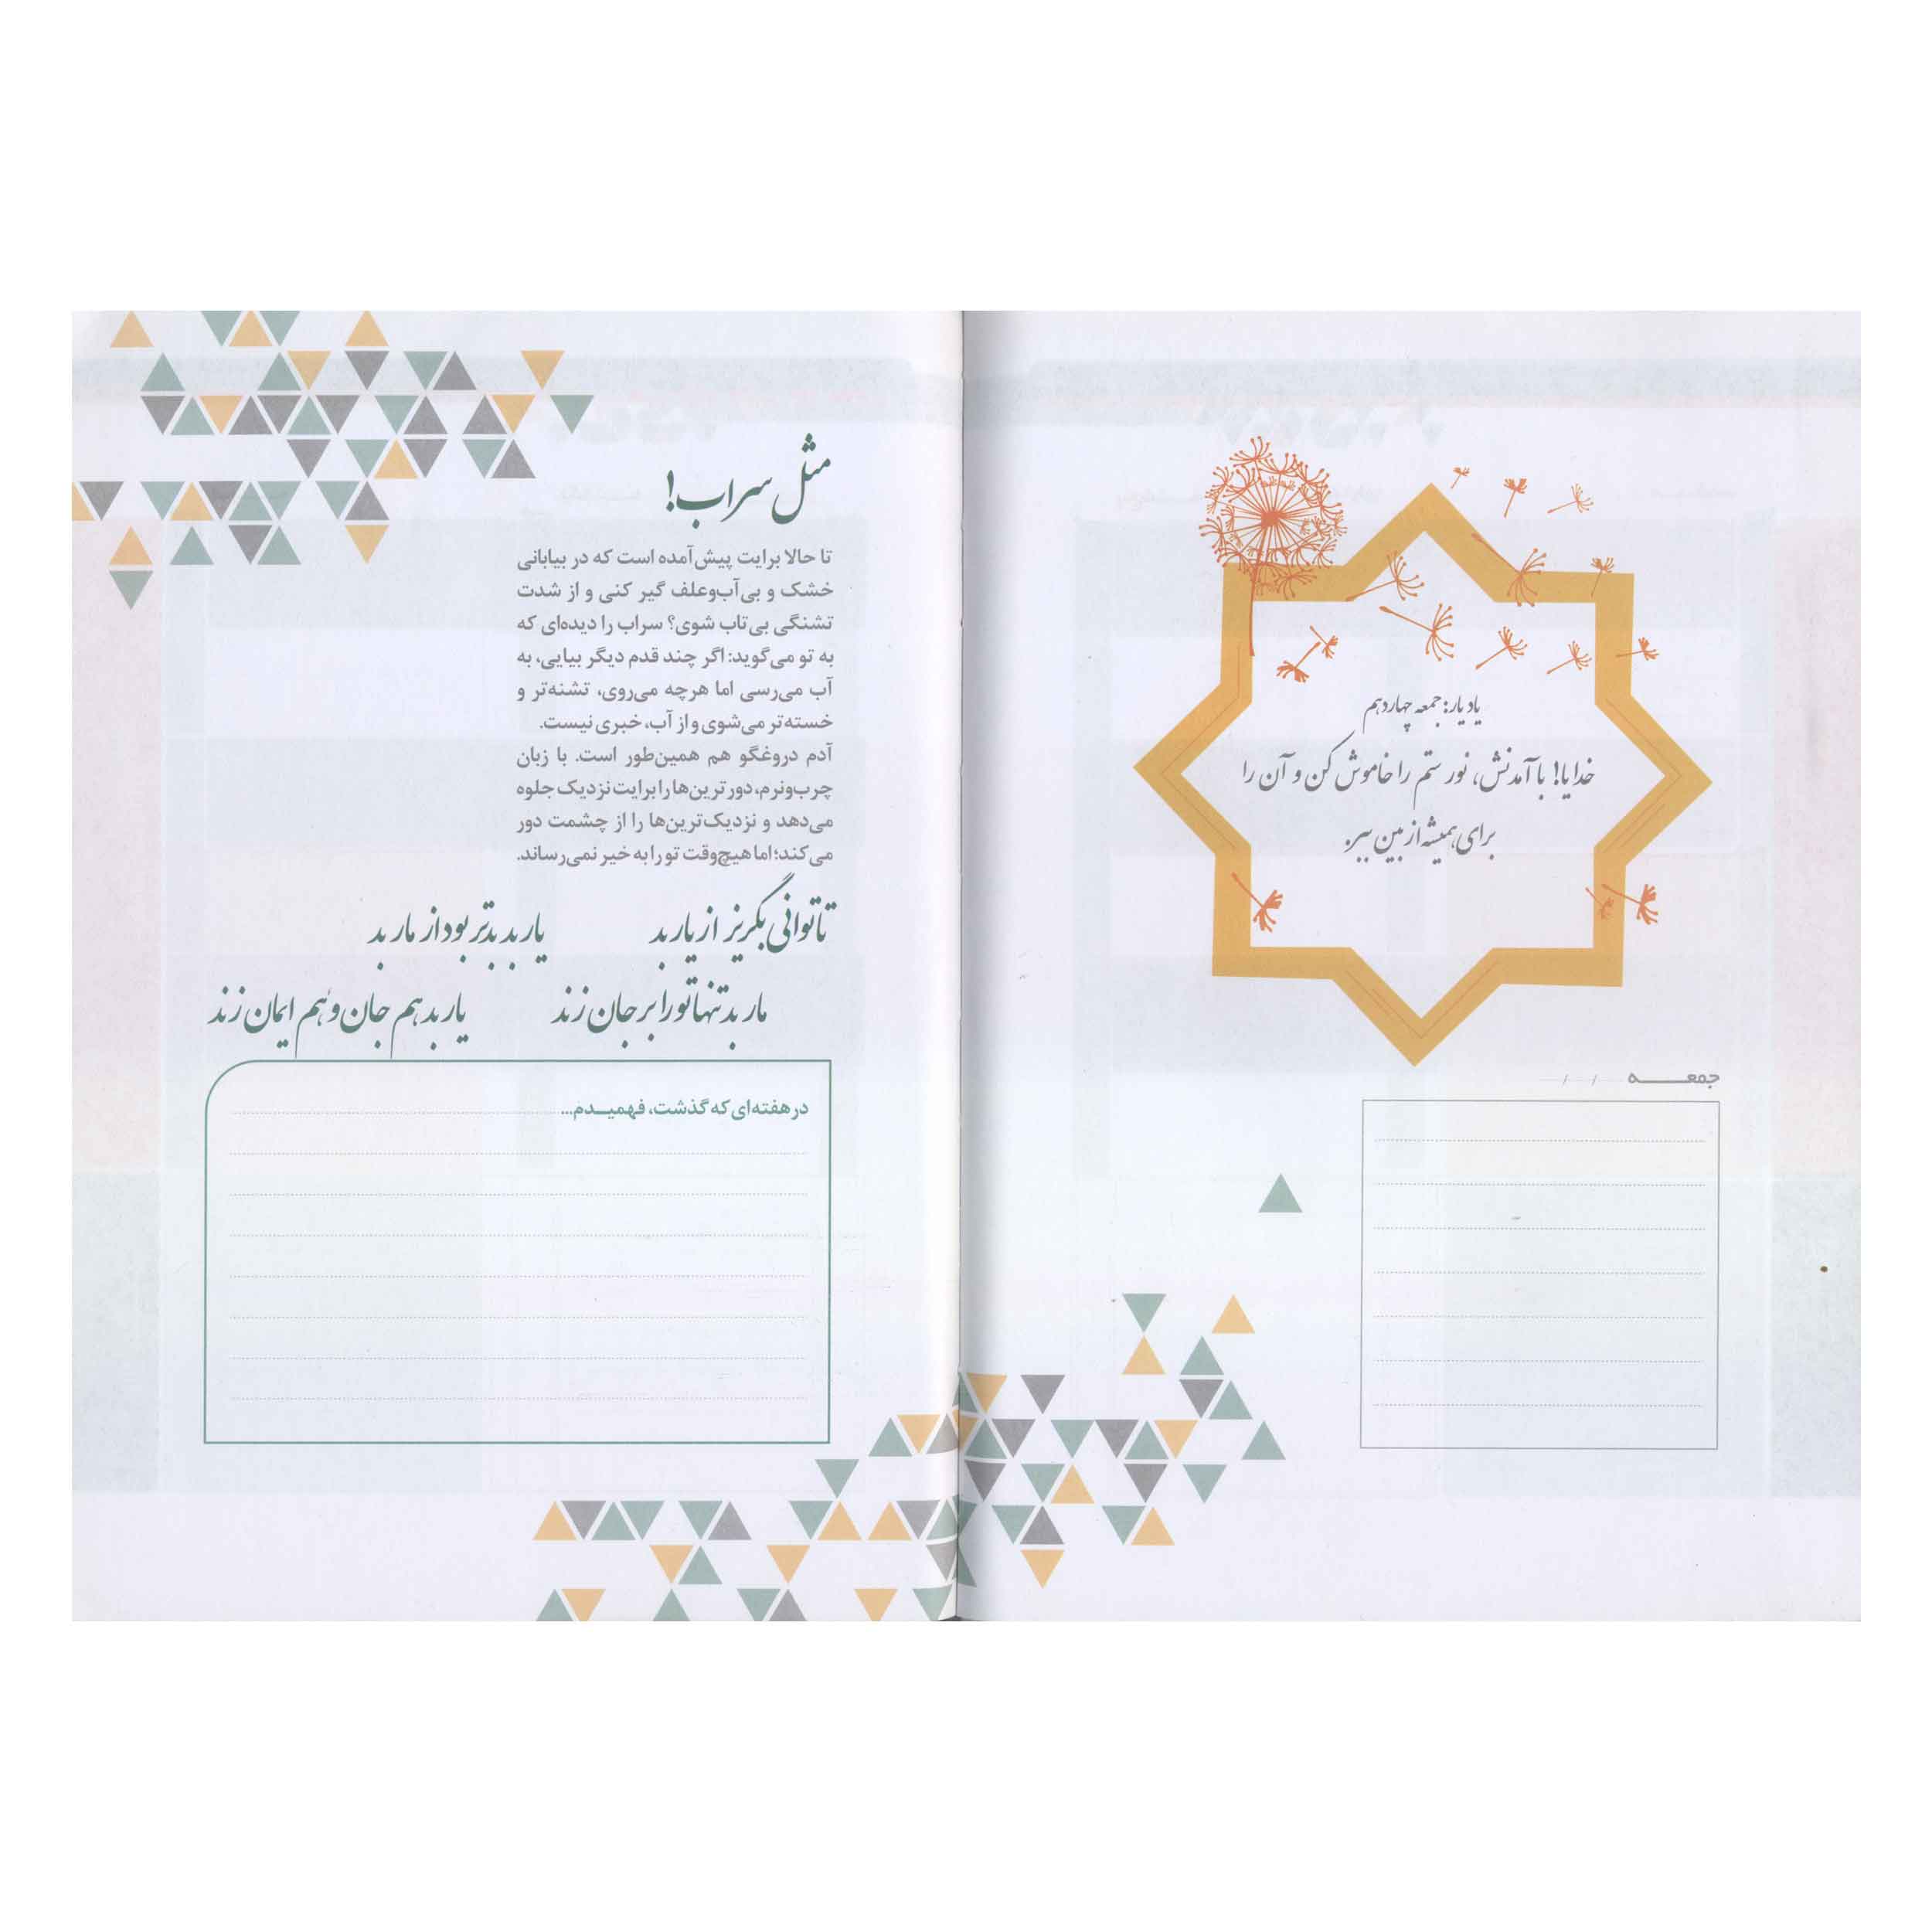 یاد یار: جمعه چهاردهم
خدایا! با آمدنش، نور ستم را خاموش کن و آن را
برای همیشه از بین ببر.
جمعـــــه / /
مثل سراب!
تا حالا برایت پیش‌آمده است که در بیابانی
خشک و بی‌آب‌وعلف گیر کنی و از شدت
تشنگی بی‌تاب شوی؟ سراب را دیده‌ای که
به تو می‌گوید: اگر چند قدم دیگر بیایی، به
آب می‌رسی اما هرچه می‌روی، تشنه‌تر و
خسته‌تر می‌شوی و از آب، خبری نیست.
آدم دروغگو هم همین‌طور است. با زبان
چرب‌ونرم، دورترین‌ها را برایت نزدیک جلوه
می‌دهد و نزدیک‌ترین‌ها را از چشمت دور
می‌کند؛ اما هیچ‌وقت تو را به خیر نمی‌رساند.
تا توانی بگریز از یار بد یار بد بدتر بود از مار بد
مار بد تنها تو را بر جان زند یار بد هم جان و هم ایمان زند
در هفته‌ای که گذشت، فهمیـــدم...